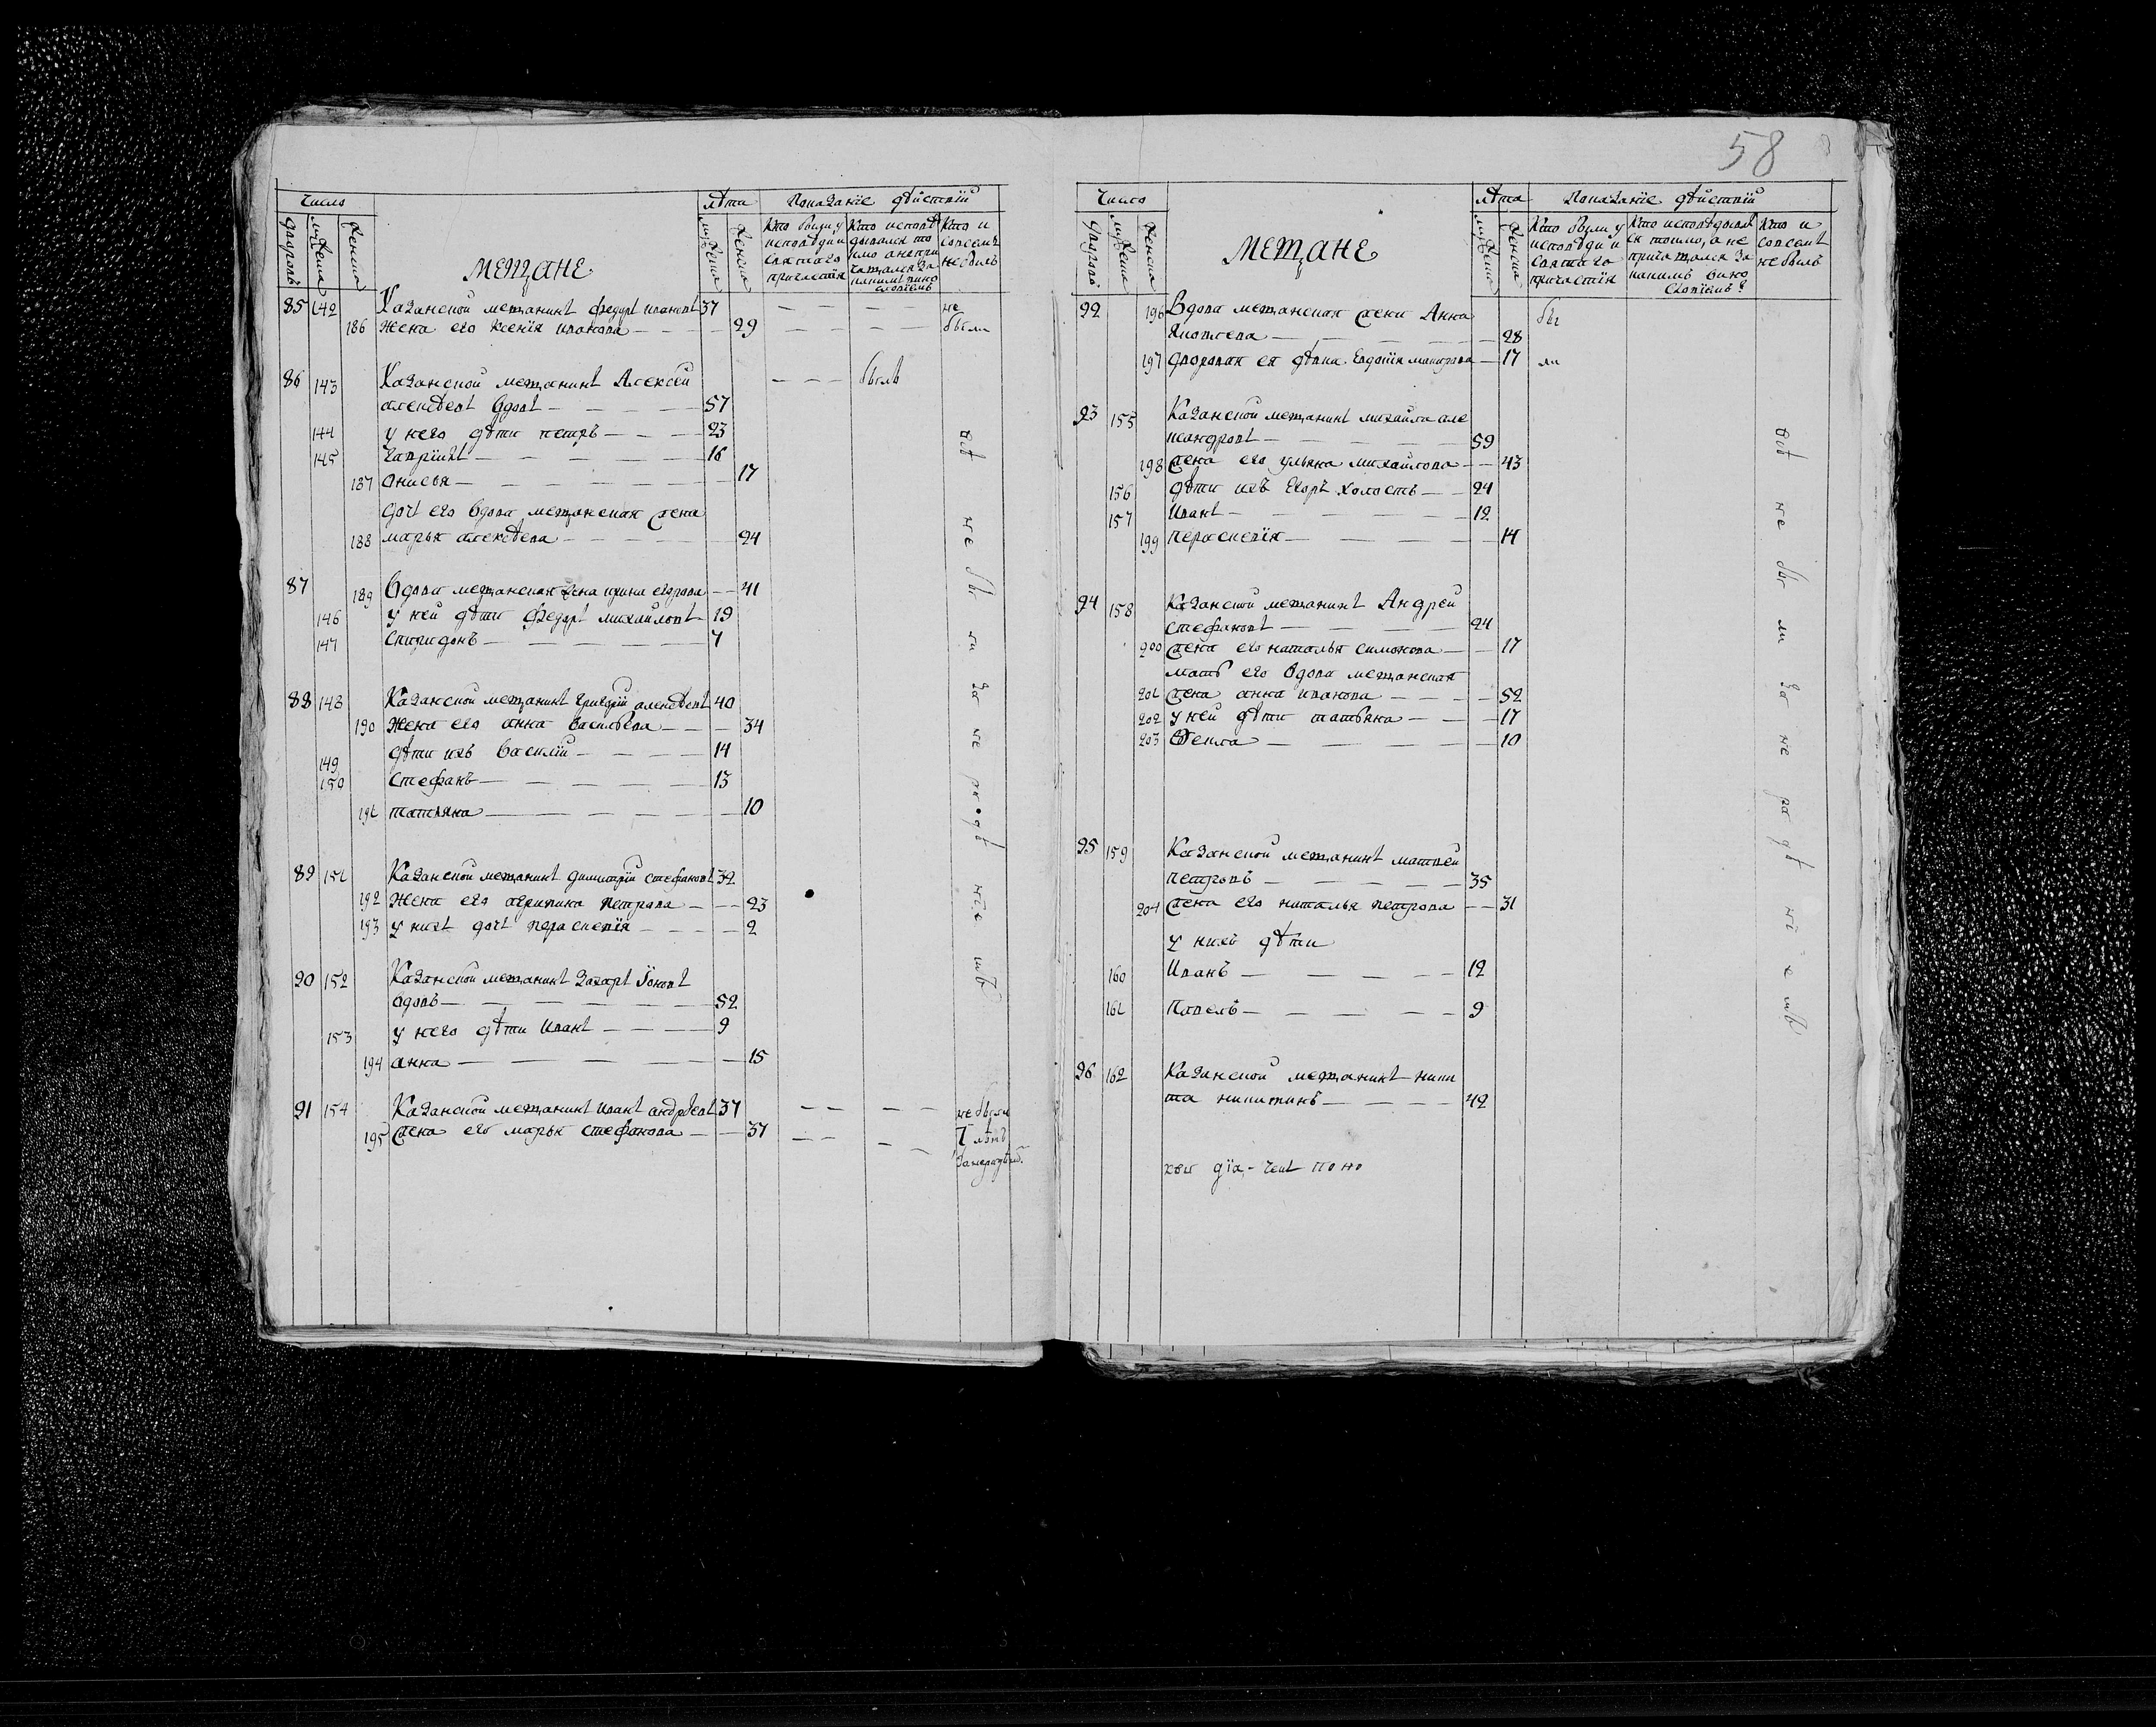 58
Число
лѣта
Показанїе дѣйствїй
дворовъ
мужеска
женска
мещане
мужеска
женска
Кто были у исповѣди и святаго причастїя
Кто исповѣдывался токмо а не причащался за какимъ виною словїемъ
Кто и совсемъ не былъ
85 142 Казанской мещанинъ федоръ ивановъ 37 — — не
186 жена его ксенїя иванова — — — 29 — — — были
86 143 Казанской мещанинъ Алексей — — — былъ
алексѣевъ вдовъ — — — — 57
144 у него дѣти петръ — — — 23
145 Гаврїилъ — — — — — 16
187 анисья — — — — — — 17
дочь его вдова мещанская жена
188 марья алексѣева — — — — — 24
87 189 вдова мещанская жена ирина егорова — — 41
146 у ней дѣти федоръ михайловъ — 19
147 спиридонъ — — — — — 7
88 148 Казанской мещанинъ григорїй алексѣевъ 40
190 жена его анна васильева — — — 34
149 дѣти ихъ василїй — — — — 14
150 стефанъ — — — — — 13
191 татьяна — — — — — — 10
89 151 Казанской мещанинъ димитрїй стефановъ 32
192 жена его агрипина петрова — — — 23
193 у нихъ дочь параскевїя — — — — 2
90 152 Казанской мещанинъ Захаръ Їоновъ
вдовъ — — — — — — 52
153 у него дѣти иванъ — — — — 9
194 анна — — — — — — 15
91 154 Казанской мещанинъ иванъ андрѣевъ 37 — — — — не были
195 жена его марья стефанова — — 37 — — — — 7 лѣтъ
за нерадѣнїе
всѣ не бы ли за не ра дѣ нїе мъ
Число
лѣта
Показанїе дѣйствїй
дворовъ
мужеска
женска
мещане
мужеска
женска
Кто были у исповѣди и святаго причастїя
Кто исповѣдывался токмо, а не причащался за какимъ виною словїемъ
Кто и совсемъ не былъ
92 196 Вдова мещанская жена Анна бы
Яковлева — — — — — 28
197 дворовая ея дѣвка Евдокїя макарова — 17 ли
93 155 Казанской мещанинъ михайла але
ксандровъ — — — — — 59
198 жена его ульяна михайлова — — 43
156 дѣти ихъ Егоръ холостъ — — 24
157 Иванъ — — — — — — 12
199 параскевїя — — — — — 14
94 158 Казанской мещанинъ Андрей
стефановъ — — — — 24
200 жена его наталья симонова — — 17
мать его вдова мещанская
201 жена анна иванова — — — — 52
202 у ней дѣти татьяна — — — 17
203 Фекла — — — — — 10
95 159 Казанской мещанинъ матвей
петровъ — — — — — 35
204 жена его наталья петрова — — 31
у нихъ дѣти
160 Иванъ — — — — — 12
161 Павелъ — — — — — 9
96 162 Казанской мещанинъ ники
та никитинъ — — — — 42
всѣ не бы ли за не ра дѣ нїе мъ